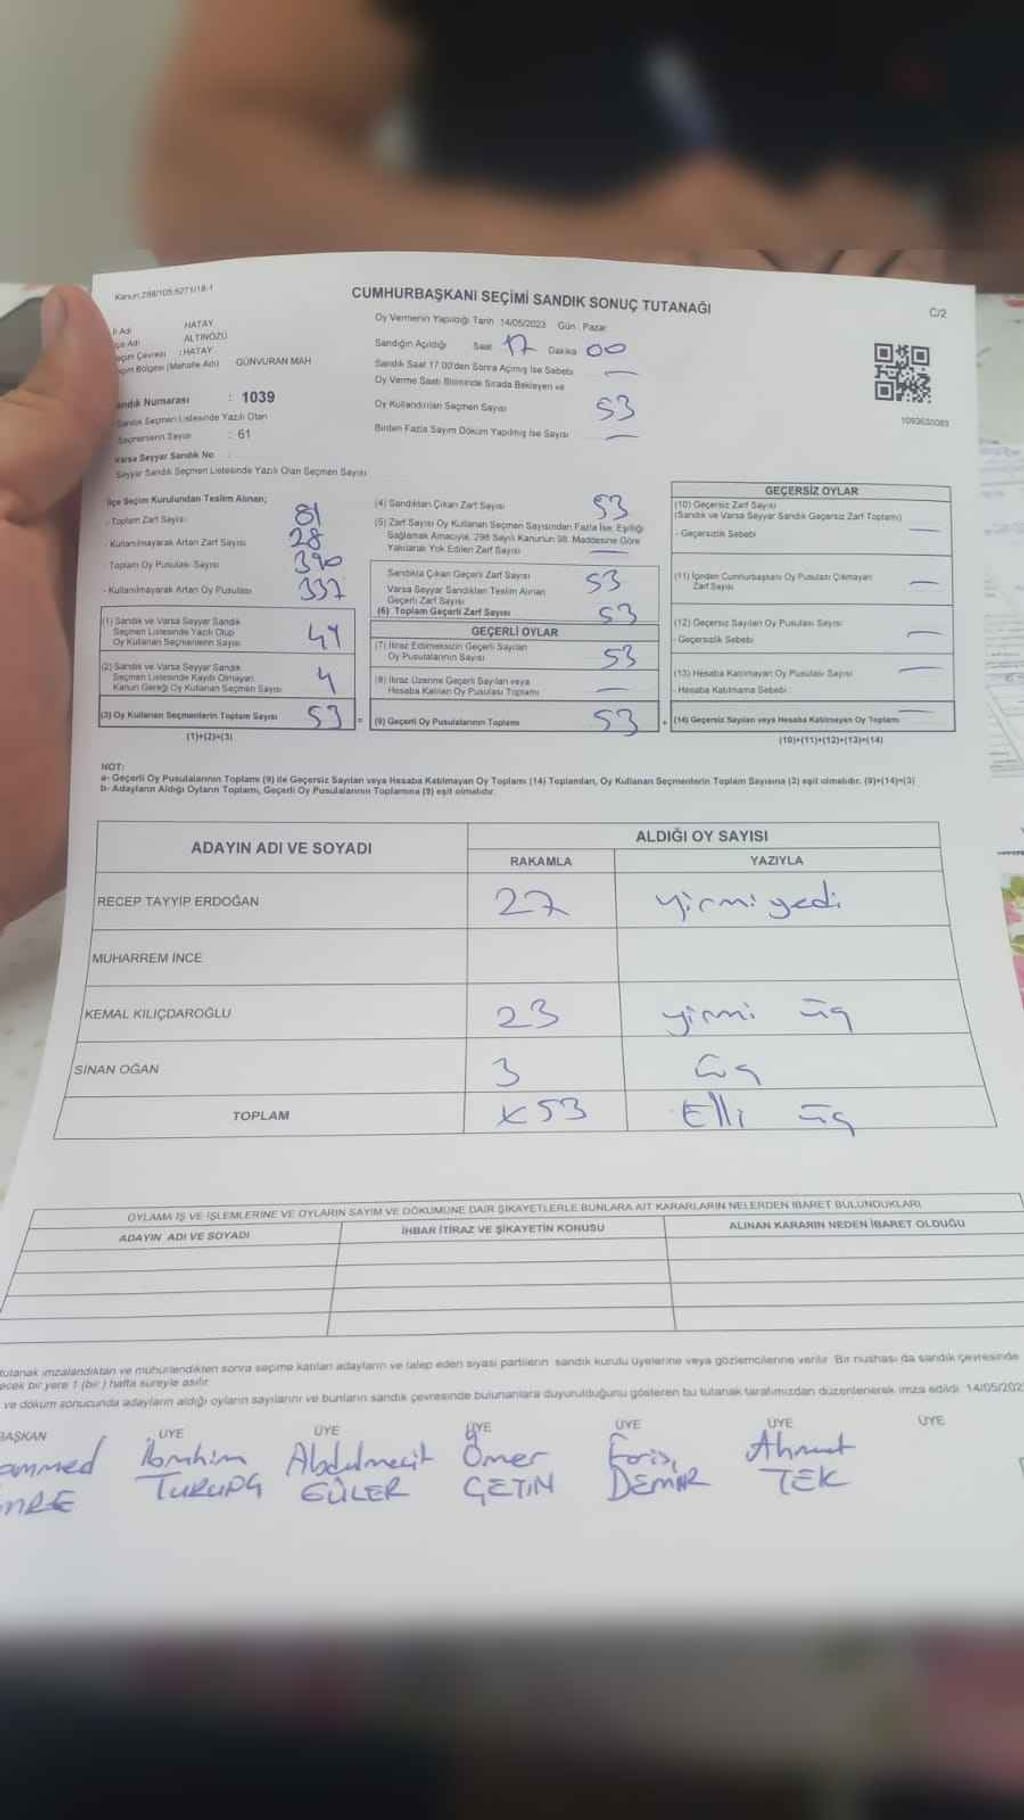 Kanun:298/105,6271/18-1
CUMHURBAŞKANI SEÇİMİ SANDIK SONUÇ TUTANAĞI
C/2
HATAY
ALTINÖZÜ
:HATAY
(Mahalle Adı) GÜNVURAN MAH
Numarası : 1039
Seçmen Listesinde Yazılı Olan
Seçmenlerin Sayısı : 61
Varsa Seyyar Sandık No
Seyyar Sandık Seçmen Listesinde Yazılı Olan Seçmen Sayısı
Oy Vermenin Yapıldığı Tarih 14/05/2023 Gün : Pazar
Sandığın Açıldığı Saat 17 Dakika 00
Sandık Saat 17.00'den Sonra Açılmış İse Sebebi —
Oy Verme Saati Bitiminde Sırada Bekleyen ve
Oy Kullandırılan Seçmen Sayısı 53
Birden Fazla Sayım Döküm Yapılmış İse Sayısı —
1093630083
İlçe Seçim Kurulundan Teslim Alınan;
- Toplam Zarf Sayısı 81
- Kullanılmayarak Artan Zarf Sayısı 28
- Toplam Oy Pusulası Sayısı 390
- Kullanılmayarak Artan Oy Pusulası 337
(1) Sandık ve Varsa Seyyar Sandık
Seçmen Listesinde Yazılı Olup
Oy Kullanan Seçmenlerin Sayısı
(2) Sandık ve Varsa Seyyar Sandık
Seçmen Listesinde Kaydı Olmayan
Kanun Gereği Oy Kullanan Seçmen Sayısı 4
(3) Oy Kullanan Seçmenlerin Toplam Sayısı 53
(1)+(2)=(3)
(4) Sandıktan Çıkan Zarf Sayısı 53
(5) Zarf Sayısı Oy Kullanan Seçmen Sayısından Fazla İse, Eşitliği
Sağlamak Amacıyla, 298 Sayılı Kanunun 98. Maddesine Göre
Yakılarak Yok Edilen Zarf Sayısı —
Sandıkta Çıkan Geçerli Zarf Sayısı 53
Varsa Seyyar Sandıktan Teslim Alınan
Geçerli Zarf Sayısı
(6) Toplam Geçerli Zarf Sayısı 53
GEÇERLİ OYLAR
(7) İtiraz Edilmeksizin Geçerli Sayılan
Oy Pusulalarının Sayısı 53
(8) İtiraz Üzerine Geçerli Sayılan veya
Hesaba Katılan Oy Pusulası Toplamı —
= (9) Geçerli Oy Pusulalarının Toplamı 53
GEÇERSİZ OYLAR
(10) Geçersiz Zarf Sayısı
(Sandık ve Varsa Seyyar Sandık Geçersiz Zarf Toplamı) —
- Geçersizlik Sebebi
(11) İçinden Cumhurbaşkanı Oy Pusulası Çıkmayan
Zarf Sayısı —
(12) Geçersiz Sayılan Oy Pusulası Sayısı —
- Geçersizlik Sebebi
(13) Hesaba Katılmayan Oy Pusulası Sayısı —
- Hesaba Katılmama Sebebi
+ (14) Geçersiz Sayılan veya Hesaba Katılmayan Oy Toplamı —
(10)+(11)+(12)+(13)=(14)
NOT:
a- Geçerli Oy Pusulalarının Toplamı (9) ile Geçersiz Sayılan veya Hesaba Katılmayan Oy Toplamı (14) Toplamları, Oy Kullanan Seçmenlerin Toplam Sayısına (3) eşit olmalıdır. (9)+(14)=(3)
b- Adayların Aldığı Oyların Toplamı, Geçerli Oy Pusulalarının Toplamına (9) eşit olmalıdır.
ADAYIN ADI VE SOYADI
ALDIĞI OY SAYISI
RAKAMLA YAZIYLA
RECEP TAYYİP ERDOĞAN 27 yirmi yedi
MUHARREM İNCE
KEMAL KILIÇDAROĞLU 23 yirmi üç
SİNAN OĞAN 3 üç
TOPLAM 53 Elli üç
OYLAMA İŞ VE İŞLEMLERİNE VE OYLARIN SAYIM VE DÖKÜMÜNE DAİR ŞİKAYETLERLE BUNLARA AİT KARARLARIN NELERDEN İBARET BULUNDUKLARI
ADAYIN ADI VE SOYADI İHBAR İTİRAZ VE ŞİKAYETİN KONUSU ALINAN KARARIN NEDEN İBARET OLDUĞU
tutanak imzalandıktan ve mühürlendikten sonra seçime katılan adayların ve talep eden siyasi partilerin sandık kurulu üyelerine veya gözlemcilerine verilir. Bir nüshası da sandık çevresinde
bir yere 1 (bir) hafta süreyle asılır.
ve döküm sonucunda adayların aldığı oyların sayılarını ve bunların sandık çevresinde bulunanlara duyurulduğunu gösteren bu tutanak tarafımızdan düzenlenerek imza edildi. 14/05/202
BAŞKAN ÜYE ÜYE ÜYE ÜYE ÜYE ÜYE
ammed İbrahim Abdulmecit Ömer Faris Ahmet
GÜLER ÇETİN DEMİR TEK